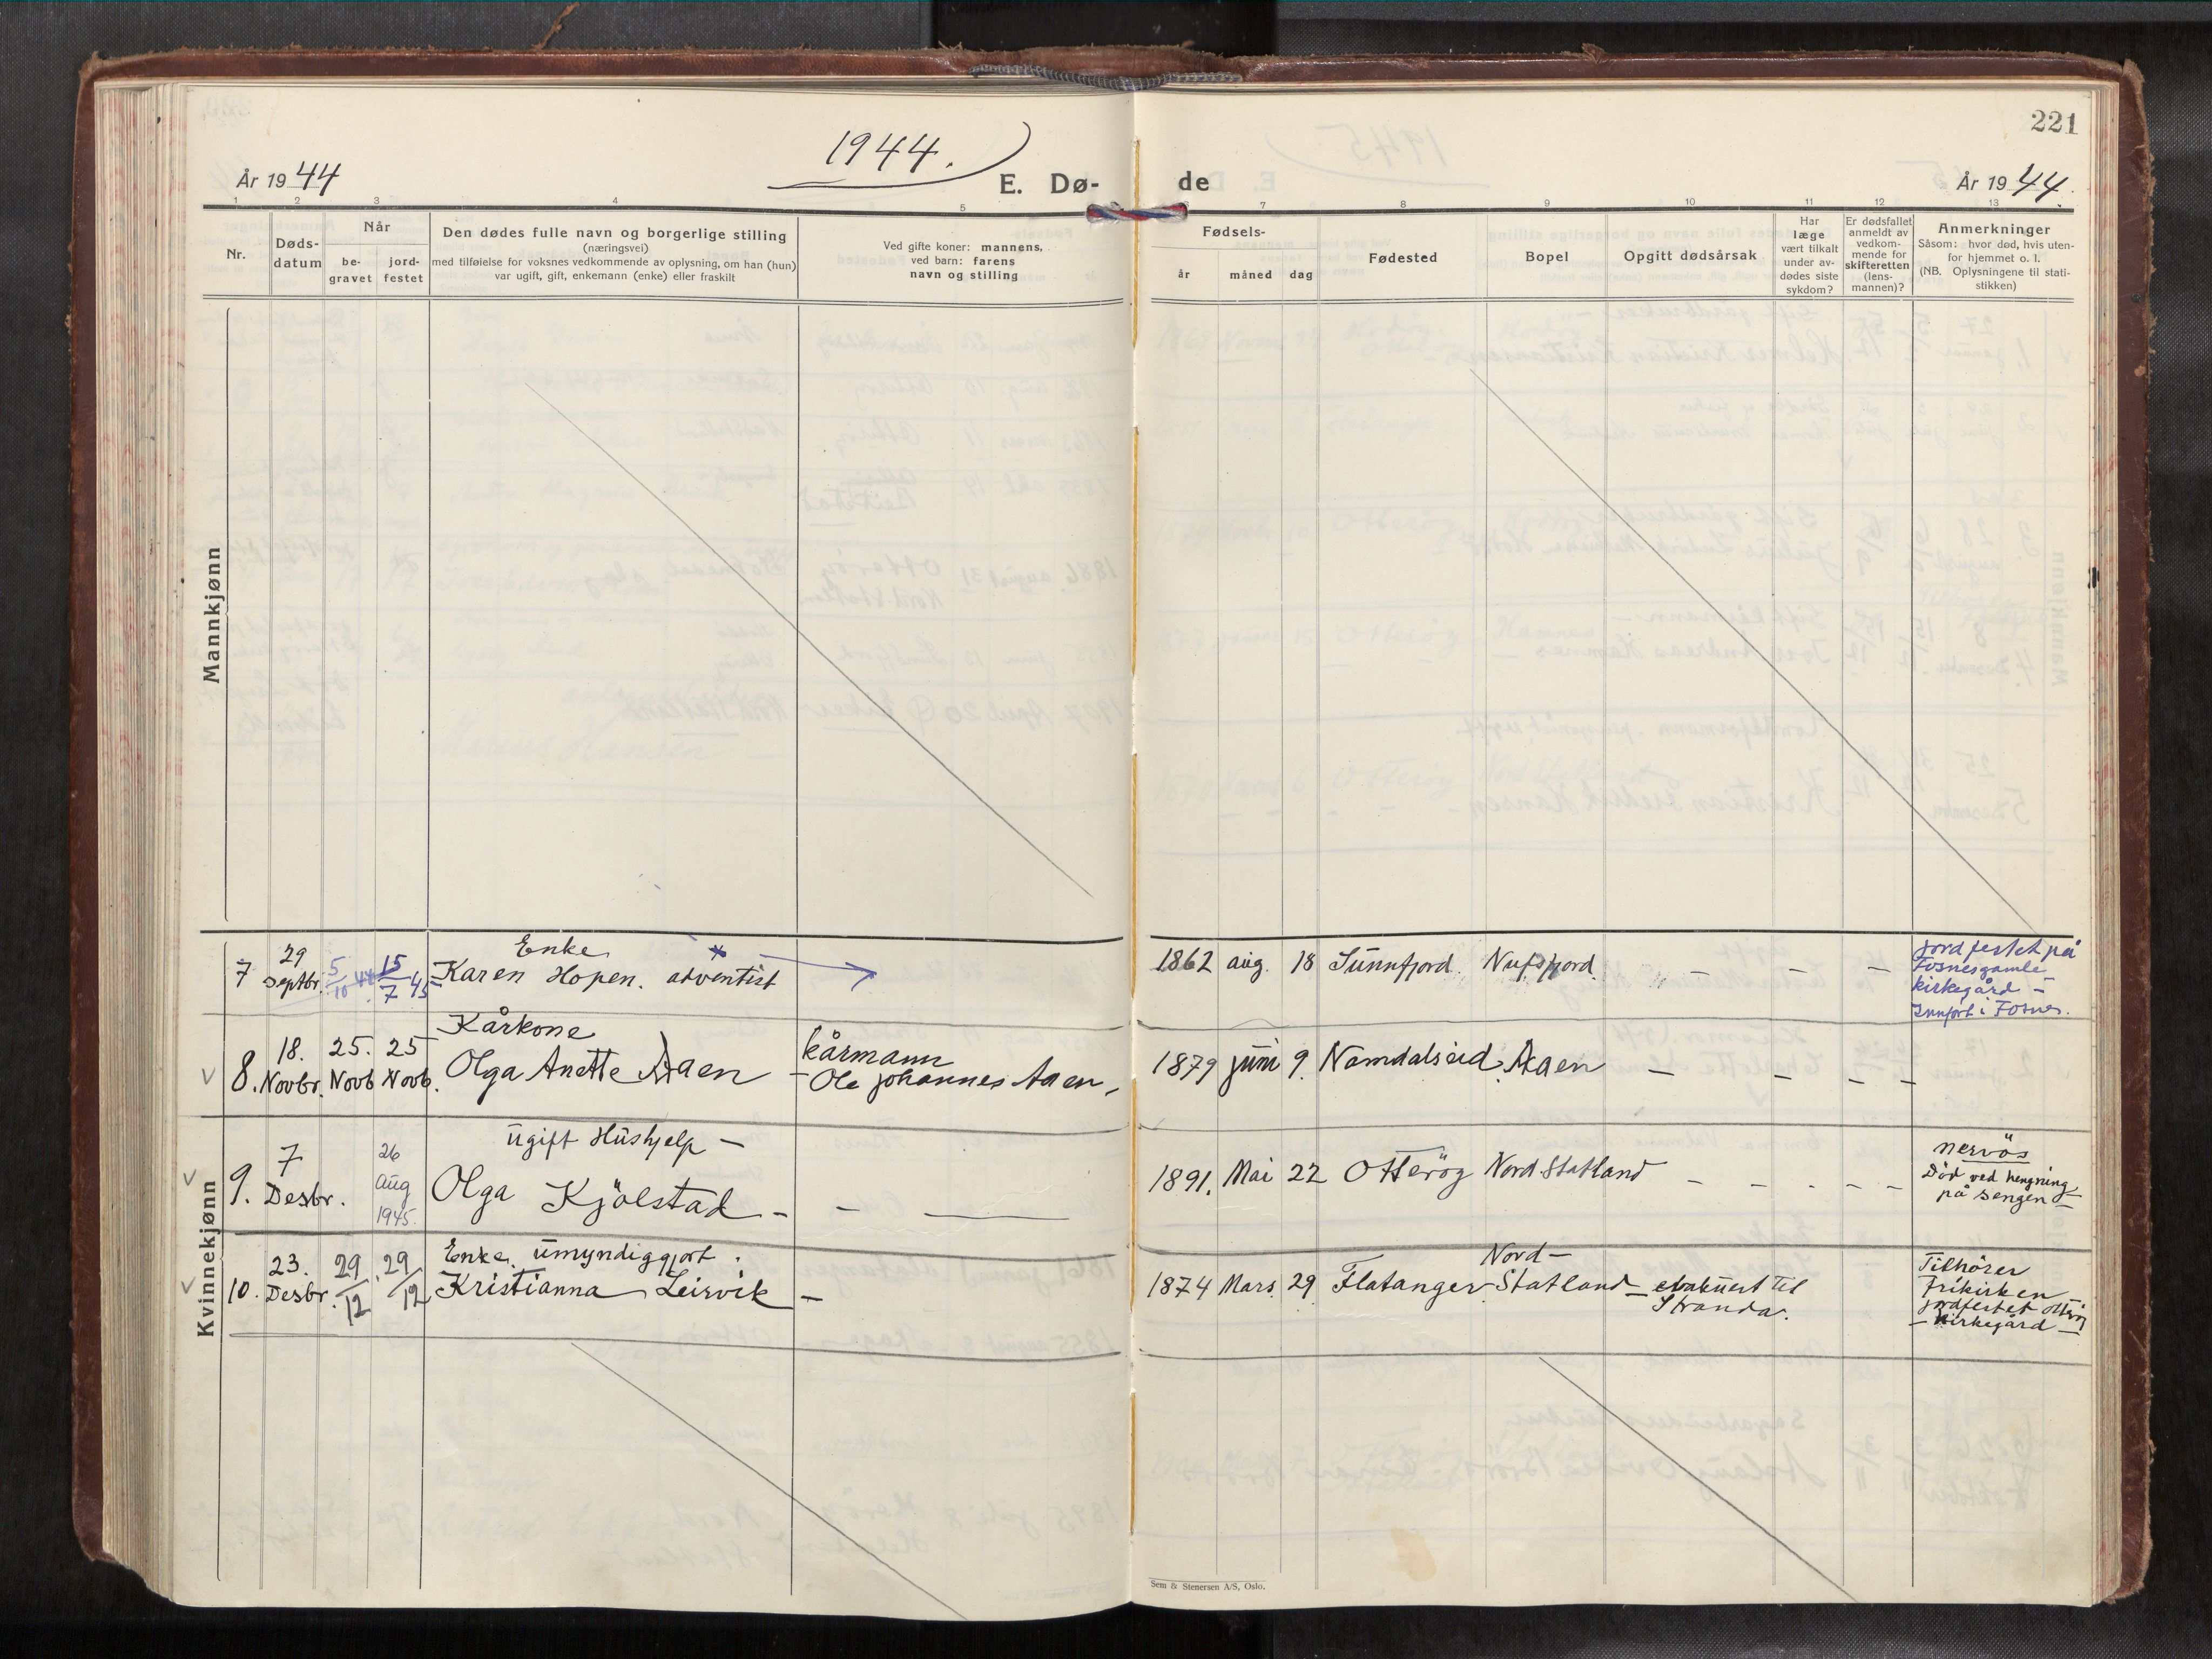 221
1944.
År 1944
E. Dø-
de
År 1944.
1 2 3 4 5 6 7 8 9 10 11 12 13
Nr.
Døds-
datum
Når
be-
gravet
jord-
festet
Den dødes fulle navn og borgerlige stilling
(næringsvei)
med tilføielse for voksnes vedkommende av oplysning, om han (hun)
var ugift, gift, enkemann (enke) eller fraskilt
Ved gifte koner: mannens,
ved barn: farens
navn og stilling
Fødsels-
år måned dag
Fødested
Bopel
Opgitt dødsårsak
Har
læge
vært tilkalt
under av-
dødes siste
sykdom?
Er dødsfallet
anmeldt av
vedkom-
mende for
skifteretten
(lens-
mannen)?
Anmerkninger
Såsom: hvor død, hvis uten-
for hjemmet o. l.
(NB. Oplysningene til stati-
stikken)
Mannkjønn
Kvinnekjønn
7
29
Septbr.
5/10 44
15/7 45
Enke
Karen Hopen. adventist
1862 aug. 18 Sunnfjord. Nufsfjord. – – –
jordfestet på
Fosnes gamle
kirkegård –
Innført i Fosnes.
8.
18.
Novbr.
25.
Novb
25
Novb.
Kårkone
Olga Anette Aaen
kårmann
– Ole Johannes Aaen –
1879 juni 9. Namdalseid. Aaen – – – –
9.
7
Desbr.
26
aug
1945.
ugift Hushjelp –
Olga Kjölstad – – –
1891. Mai 22 Otteröy Nord-Statland – – – – –
nervös
Död ved hengning
på sengen –
10.
23.
Desbr.
29/12
29/12
Enke. umyndiggjort.
Kristianna Leirvik –
1874 Mars. 29 Flatanger
Nord –
Statland – evakuert til
Stranda.
Tilhörer
Frikirken
jordfestet Otteröy
– kirkegård –
Sem & Stenersen A/S, Oslo.